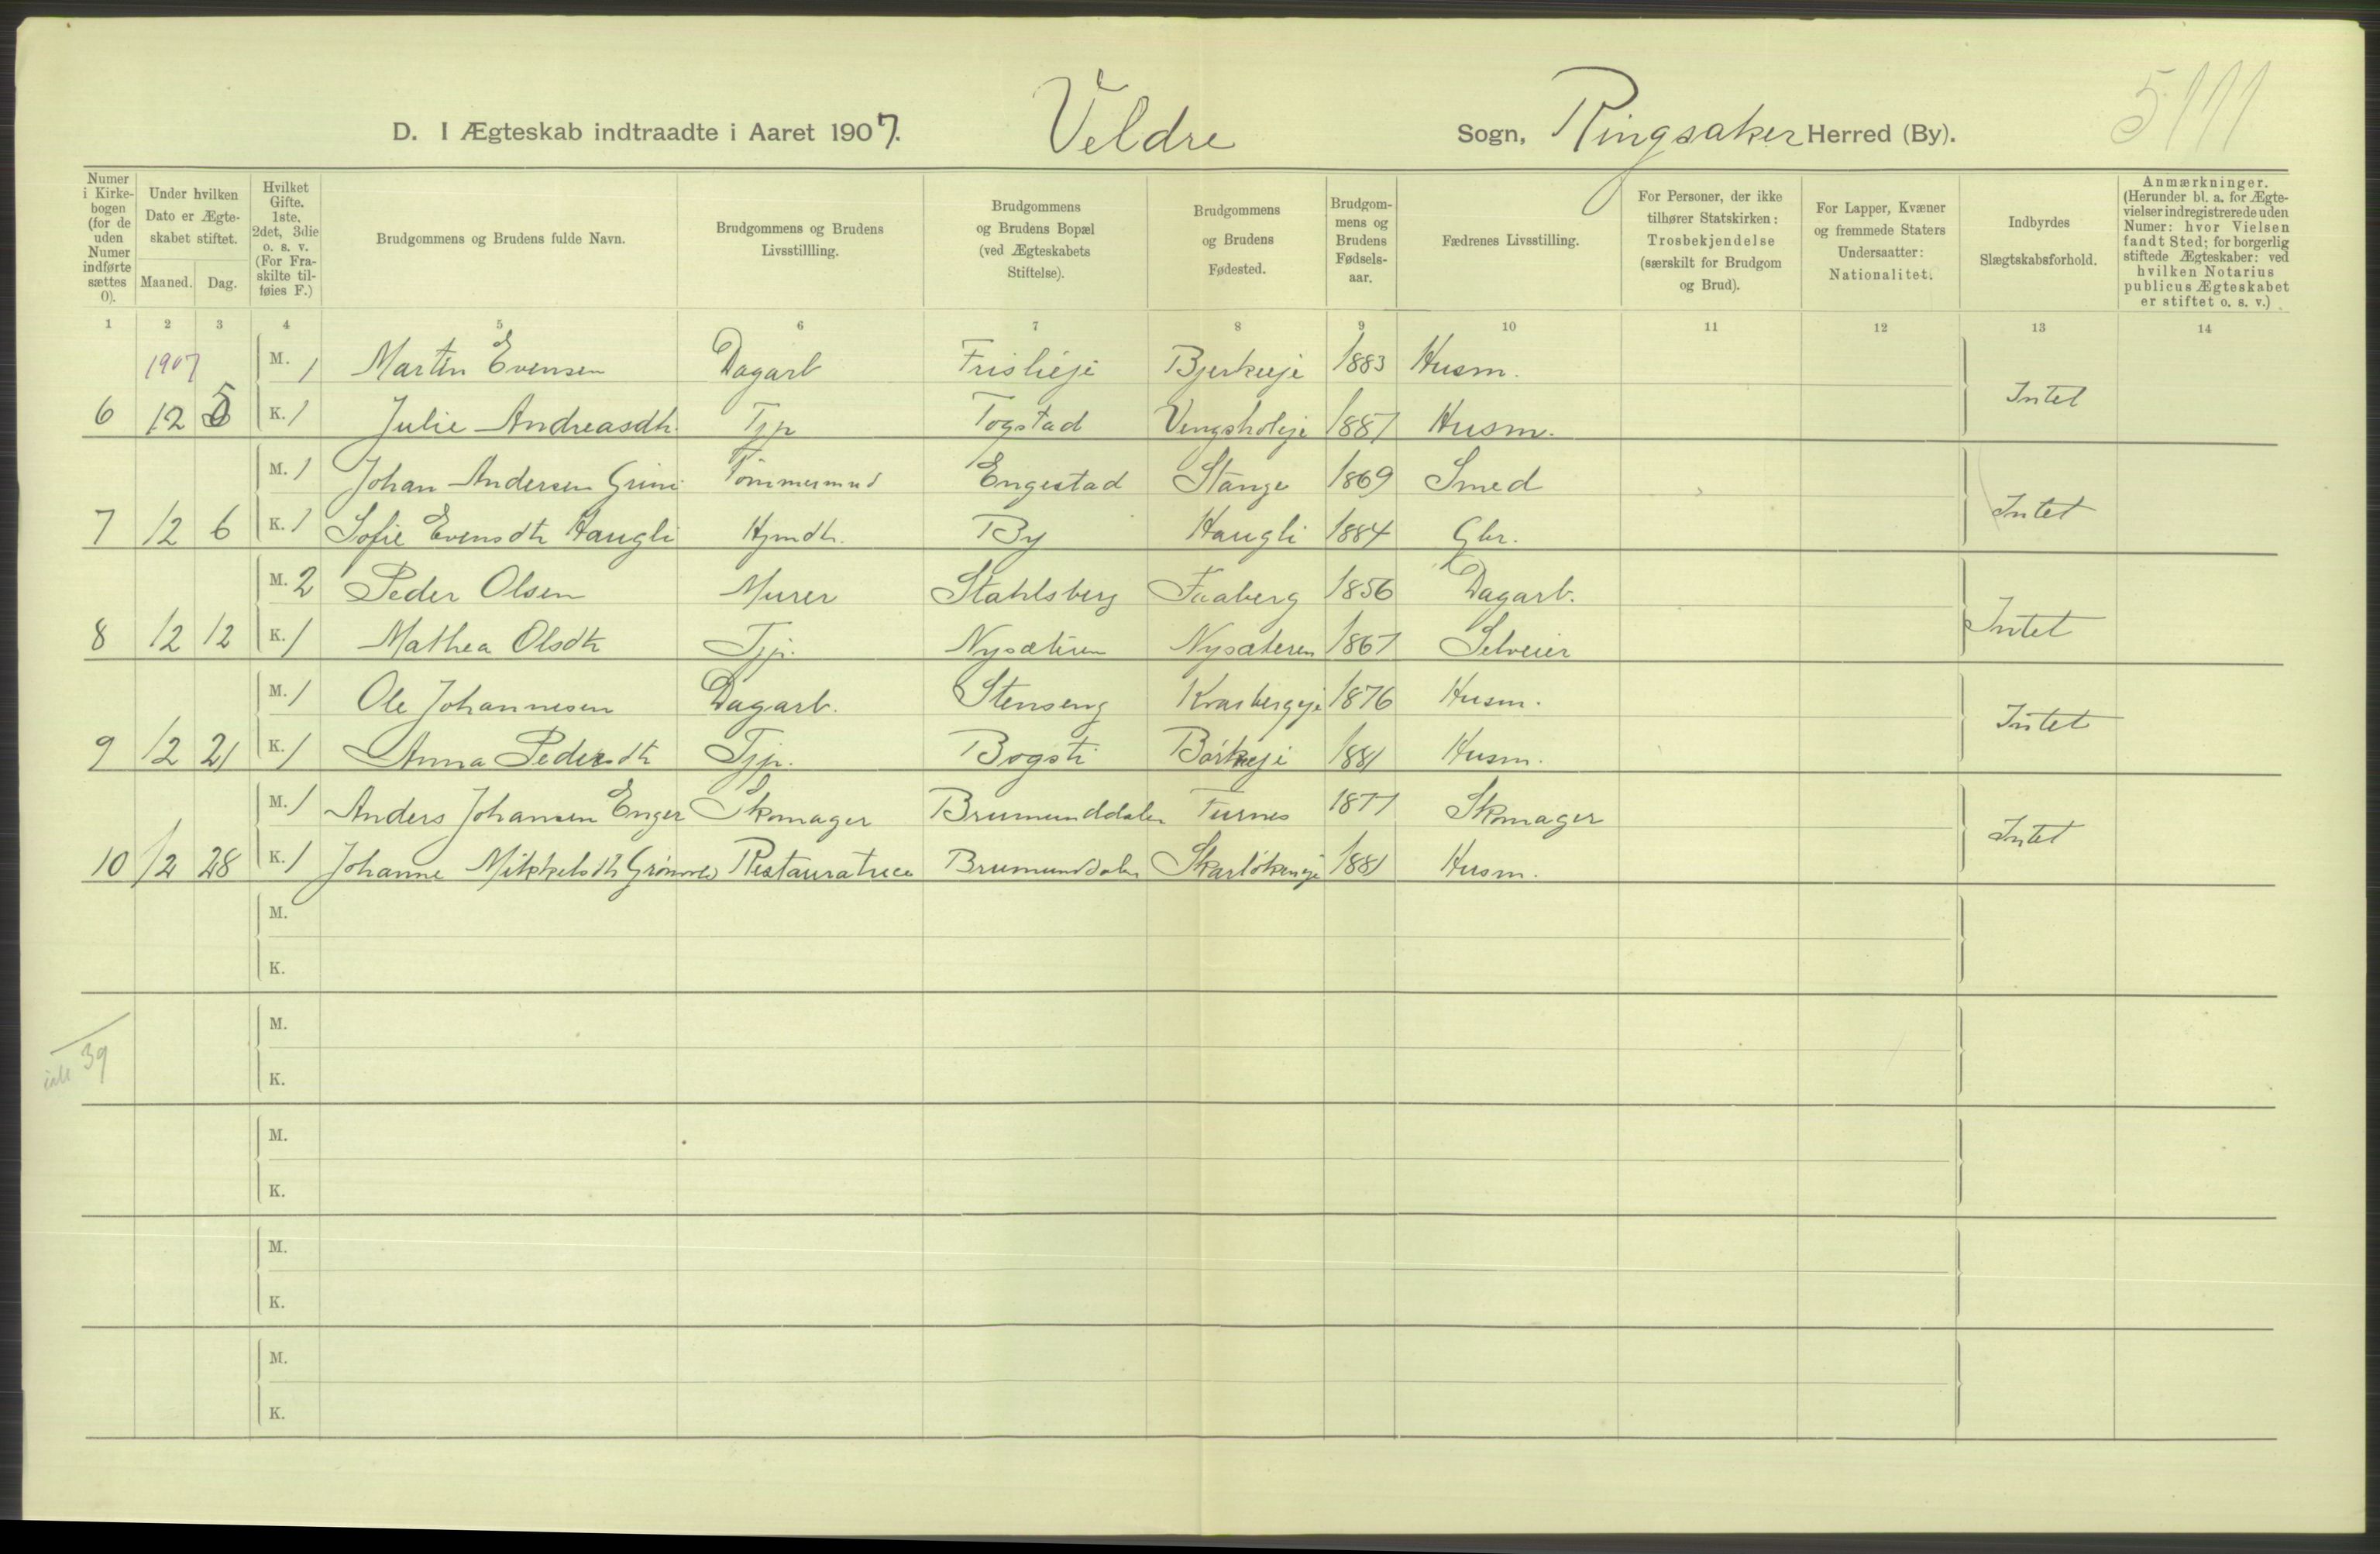 D. I Ægteskab indtraadte i Aaret 1907. Veldre Sogn, Ringsaker Herred (By).
Numer i Kirkebogen (for de uden Numer indførte sættes 0).
Under hvilken Dato er Ægteskabet stiftet.
Maaned. Dag.
Hvilket Gifte. 1ste, 2det, 3die o. s. v. (For Fraskilte tilføies F.)
Brudgommens og Brudens fulde Navn.
Brudgommens og Brudens Livsstillling.
Brudgommens og Brudens Bopæl (ved Ægteskabets Stiftelse).
Brudgommens og Brudens Fødested.
Brudgommens og Brudens Fødselsaar.
Fædrenes Livsstilling.
For Personer, der ikke tilhører Statskirken: Trosbekjendelse (særskilt for Brudgom og Brud).
For Lapper, Kvæner og fremmede Staters Undersaatter: Nationalitet.
Indbyrdes Slægtskabsforhold.
Anmærkninger. (Herunder bl. a. for Ægtevielser indregistrerede uden Numer: hvor Vielsen fandt Sted; for borgerlig stiftede Ægteskaber: ved hvilken Notarius publicus Ægteskabet er stiftet o. s. v.)
1 2 3 4 5 6 7 8 9 10 11 12 13 14
1907 M. 1 Martin Evensen Dagarb Frislieje Bjerkeeje 1883 Husm.
6 12 5 K. 1 Julie Andreasdh. Tjp Togstad Vengsholeje 1887 Husm. Intet
M. 1 Johan Andersen Grini Tömmermnd Engestad Stange 1869 Smed
7 12 6 K. 1 Sofie Evensdtr Haugli Hjmdtr. By Haugli 1884 Gbr. Intet
M. 2 Peder Olsen Murer Stahlsberg Faaberg 1856 Dagarb.
8 12 12 K. 1 Mathea Olsdtr Tjp. Nysæteren Nysæteren 1867 Selveier Intet
M. 1 Ole Johannesen Dagarb. Stenseng Kvarbergeje 1876 Husm.
9 12 21 K. 1 Anna Pedersdtr Tjp. Bogsti Börkeeje 1881 Husm. Intet
M. 1 Anders Johansen Enger Skomager Brumunddalen Furnes 1877 Skomager
10 12 28 K. 1 Johanne Mikkelsdtr Restauratrice Brumunddalen 1881 Husm. Intet
M.
K.
M.
39
K.
M.
K.
M.
K.
M.
K.